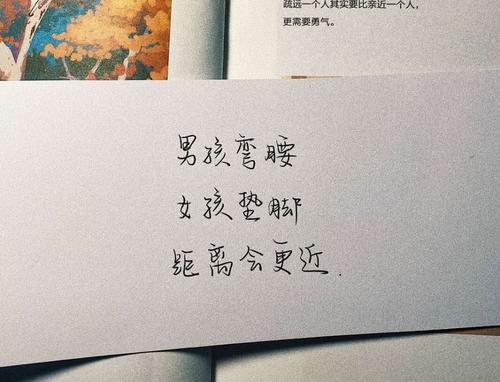 疏远一个人其实要比亲近一个人，
更需要勇气。
男孩弯腰
女孩垫脚
距离会更近.